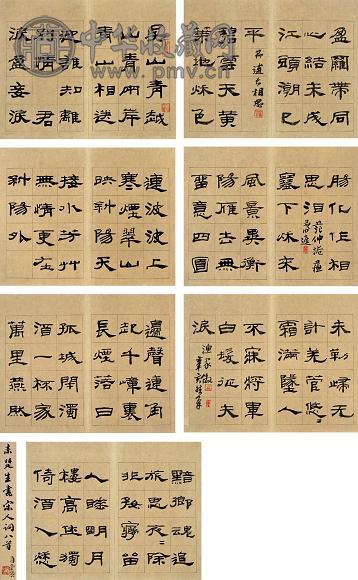 中华收藏网
www.pmv.cn
吳山青越
山青兩岸
青山相送
迎誰知離
別情君
淚盈妾淚
盈羅帶同
心結未成
江頭潮已
平
林逋長相思
碧雲天黃
葉地秋色
連波波上
寒煙翠山
映斜陽天
接水芳草
無情更在
斜陽外
腸化作相
思淚
范仲淹
塞下秋來
風景異衡
陽雁去無
留意四面
邊聲連角
起千嶂裏
長煙落日
孤城閉濁
酒一杯家
萬里燕然
未勒歸無
計羌管悠〻
霜滿地人
不寐將軍
白髮征夫
淚
漁家傲
黯鄉魂追
旅思夜〻除
非好夢留
人睡明月
樓高休獨
倚酒入愁
來楚生書宋人詞八首